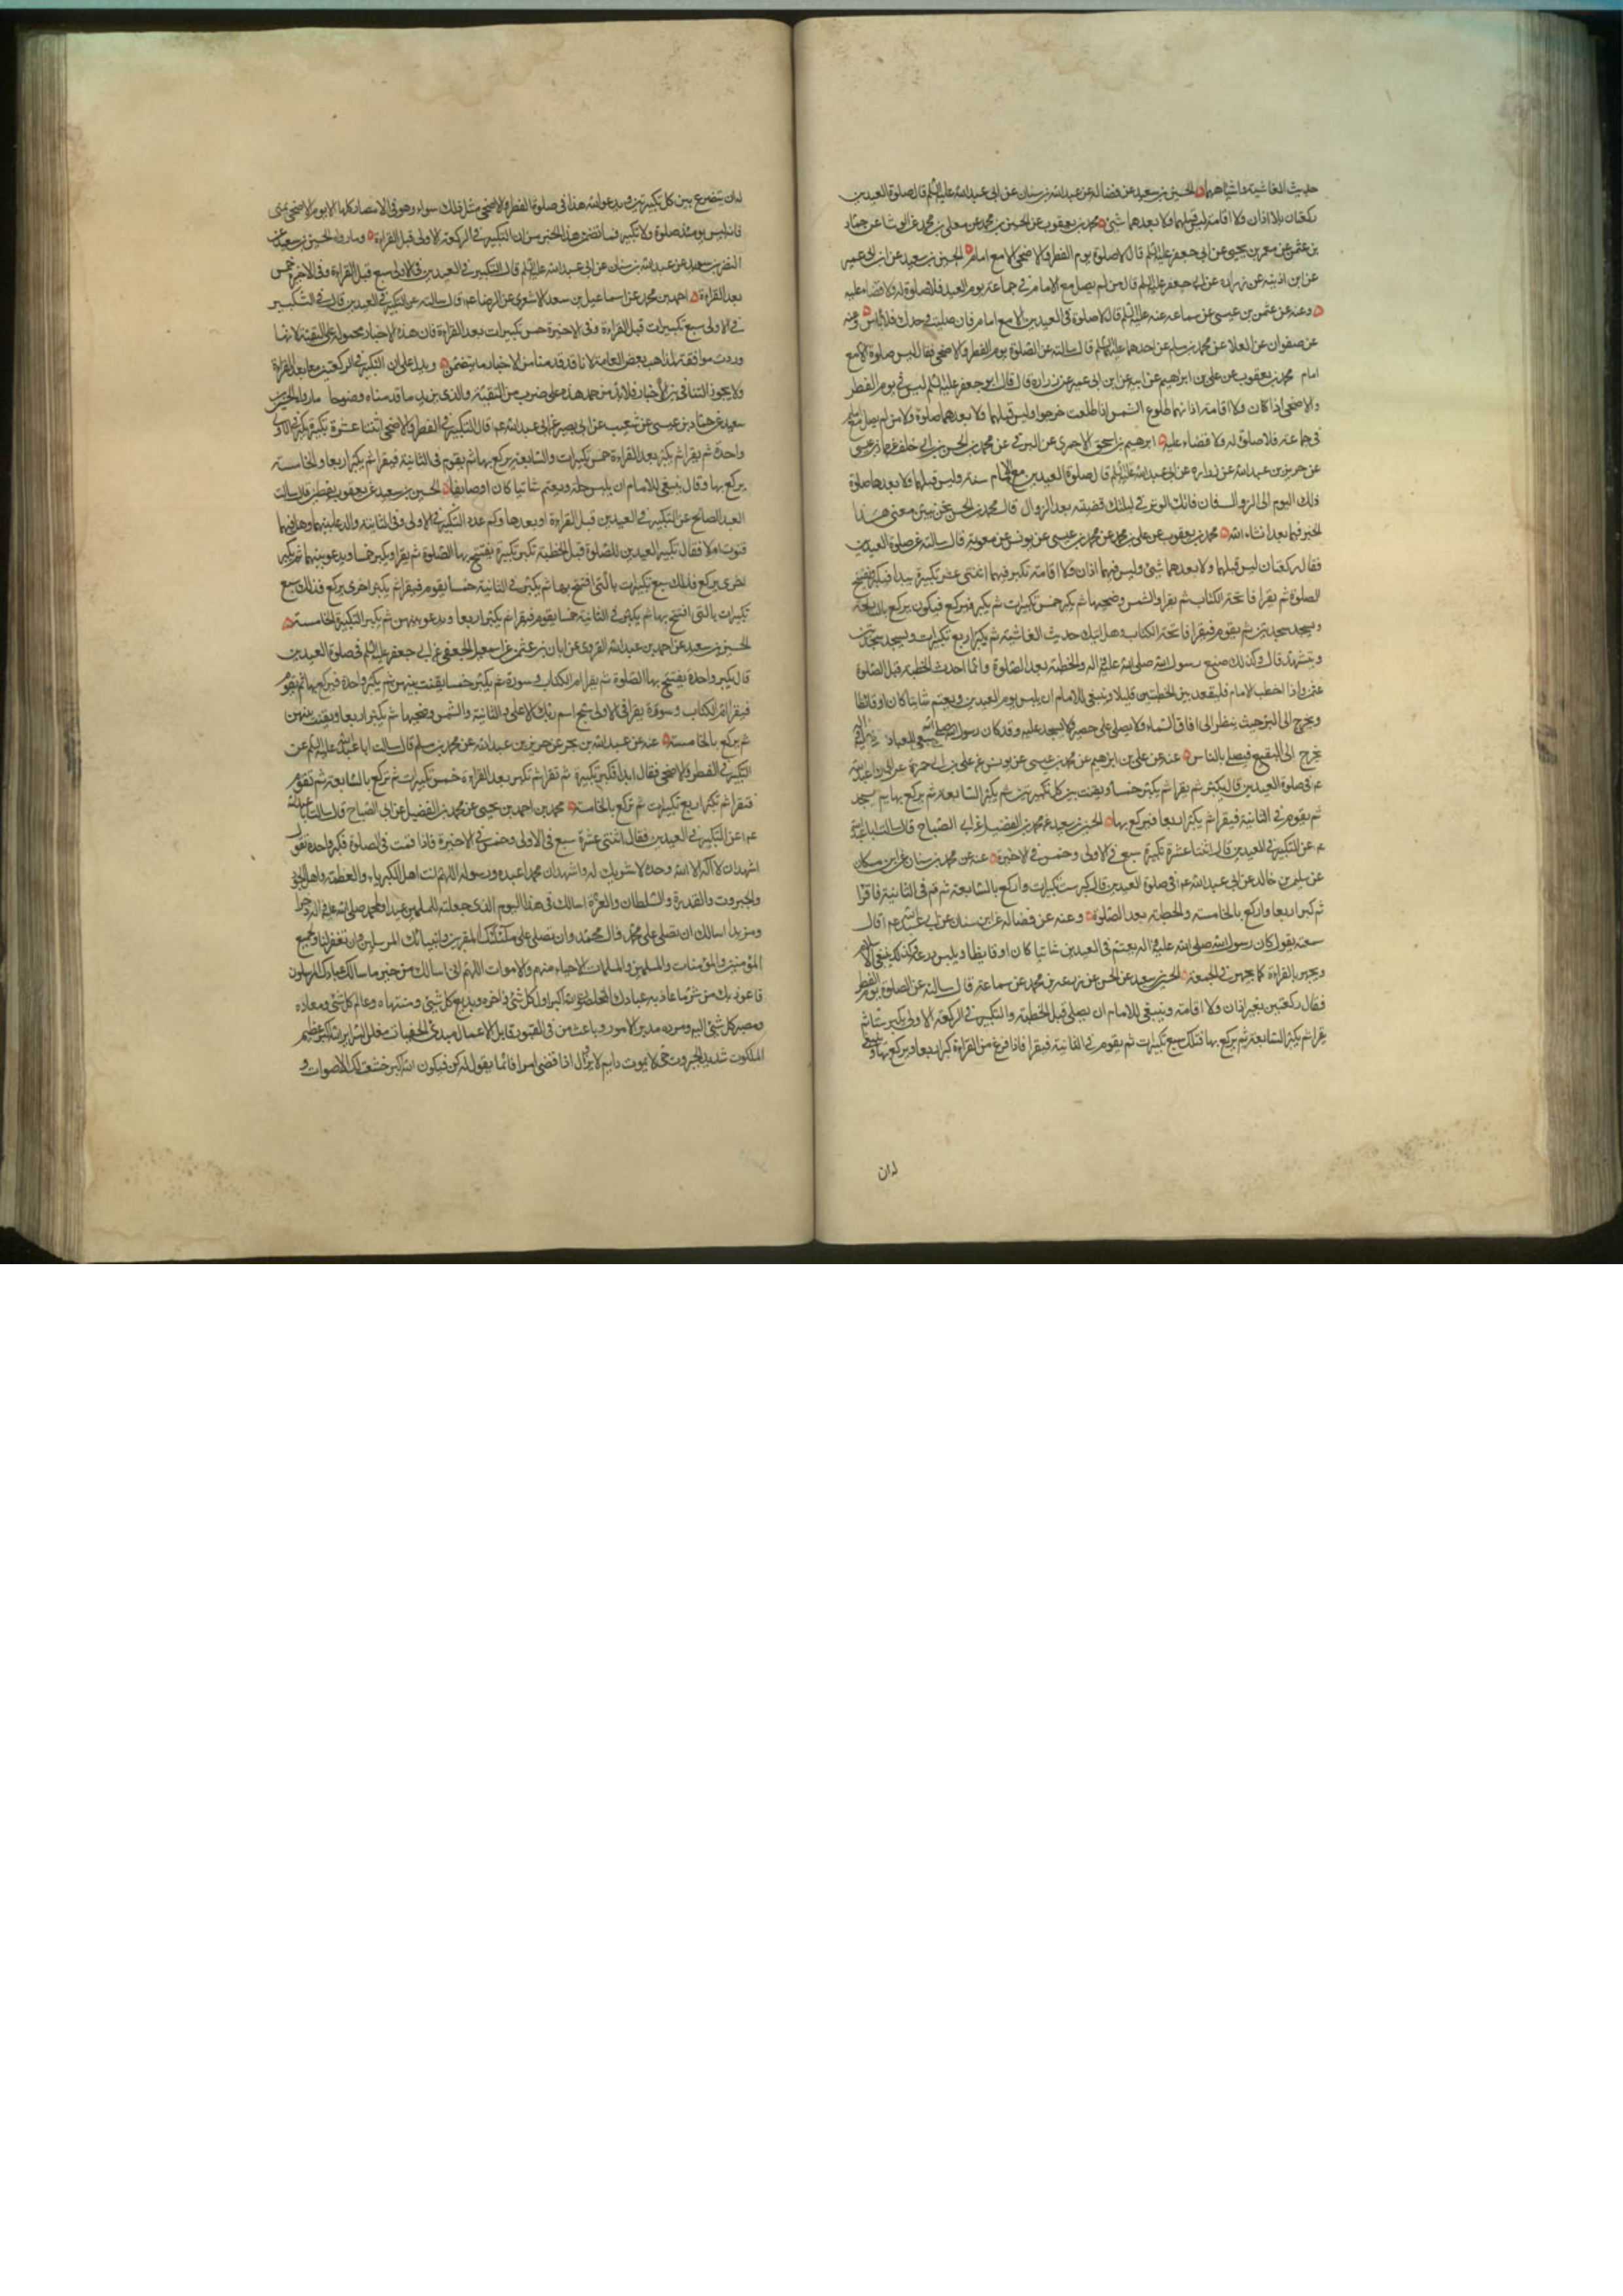 حديث الغاشية واشباههما الحسين بن سعيد عن فضالة عن عبد الله بن سنان عن ابى عبد الله عليه السلم قال صلوة العيدين
ركعتان بلا اذان ولا اقامة ليس قبلهما ولا بعدهما شئ محمد بن يعقوب عن الحسين بن محمد عن معلى بن محمد عن الوشا عن حماد
بن عثمن عن معمر بن يحيى عن ابى جعفر عليه السلم قال لا صلوة يوم الفطر والاضحى الا مع امام الحسين بن سعيد عن ابن ابى عمير
عن ابن اذينة عن زرارة عن ابى جعفر عليه السلم قال من لم يصل مع الامام فى جماعة يوم العيد فلا صلوة له ولا قضاء عليه
وعنه عن عثمن بن عيسى عن سماعة عنه عليه السلم قال لا صلوة فى العيدين الا مع امام فان صليت وحدك فلا بأس وعنه
عن صفوان عن العلا عن محمد بن مسلم عن احدهما عليهما السلم قال سالته عن الصلوة يوم الفطر والاضحى فقال ليس صلوة الا مع
امام محمد بن يعقوب عن على بن ابراهيم عن ابيه عن ابن ابى عمير عن زرارة قال قال ابو جعفر عليه السلم ليس فى يوم الفطر
والاضحى اذان ولا اقامة اذانهما طلوع الشمس اذا طلعت خرجوا وليس قبلهما ولا بعدهما صلوة ومن لم يصل مع امام
فى جماعة فلا صلوة له ولا قضاء عليه ابرهيم بن اسحق الاحمرى عن البرقى عن محمد بن الحسن بن ابى خلف عن حماد بن عيسى
عن حريز بن عبد الله عن زرارة عن ابى عبد الله عليه السلم قال صلوة العيدين مع الامام سنة وليس قبلهما ولا بعدهما صلوة
ذلك اليوم الى الزوال فان فاتك الوتر فى ليلتك قضيته بعد الزوال قال محمد بن الحسن نحن نبين معنى هذا
الخبر فيما بعد ان شاء الله محمد بن يعقوب عن على بن محمد عن محمد بن عيسى عن يونس عن معوية قال سالته عن صلوة العيدين
فقال ركعتان ليس قبلهما ولا بعدهما شئ وليس فيهما اذان ولا اقامة تكبر فيهما اثنتى عشر تكبيرة يبدأ فيكبر فيفتتح
الصلوة ثم يقرا فاتحة الكتاب ثم يقرا والشمس وضحيها ثم يكبر خمس تكبيرات ثم يكبر فيركع فيكون يركع بالسابعة
ويسجد سجدتين ثم يقوم فيقرا فاتحة الكتاب وهل اتيك حديث الغاشية ثم يكبر اربع تكبيرات ويسجد سجدتين
ويتشهد قال وكذلك صنع رسول الله صلى الله عليه واله والخطبة بعد الصلوة وانما احدث الخطبة قبل الصلوة
عثمن واذا اخطب الامام فليقعد بين الخطبتين قليلا وينبغى للامام ان يلبس يوم العيدين ويعتم شاتيا كان او قايظا
ويخرج الى البر حيث ينظر الى افاق السماء ولا يصلى على حصير ولا يسجد عليه وقد كان رسول الله صلى الله عليه واله
يخرج الى البقيع فيصلى بالناس عنه عن على بن ابرهيم عن محمد بن عيسى عن يونس عن على بن ابى حمزة عن ابى عبد الله
عم فى صلوة العيدين قال يكبر ثم يقرا ثم يكبر خمسا ويقنت بين كل تكبيرتين ثم يكبر السابعة ثم يركع بها ثم يسجد
ثم يقوم فى الثانية فيقرا ثم يكبر اربعا فيركع بها الحسين بن سعيد عن محمد بن الفضيل عن ابى الصباح قال سالت ابا عبد الله
عم عن التكبير فى العيدين قال اثنتا عشرة تكبيرة سبع فى الاولى وخمس فى الاخيرة عنه عن محمد بن سنان عن ابن مسكان
عن سليمن بن خالد عن ابى عبد الله عم فى صلوة العيدين قال كبر ست تكبيرات واركع بالسابعة ثم قم فى الثانية فاقرا
ثم كبر اربعا واركع بالخامسة والخطبة بعد الصلوة وعنه عن فضالة عن ابن سنان عن ابى عبد الله عم قال
سمعته يقول كان رسول الله صلى الله عليه واله يعتم فى العيدين شاتيا كان او قايظا ويلبس درعه وكذلك ينبغى للامام
ويجهر بالقراءة كما يجهر فى الجمعة الحسين بن سعيد عن الحسن عن زرعة بن محمد عن سماعة قال سالته عن الصلوة يوم الفطر
فقال ركعتين بغير اذان ولا اقامة وينبغى للامام ان يصلى قبل الخطبة والتكبير فى الركعة الاولى يكبر ستا ثم
يقرا ثم يكبر السابعة ثم يركع بها فتلك سبع تكبيرات ثم يقوم فى الثانية فيقرا فاذا فرغ من القراءة كبر اربعا ويركع بها وينبغى
له ان
له ان يتضرع بين كل تكبيرتين ويدعو الله هذا فى صلوة الفطر والاضحى مثل ذلك سواء وهو فى الامصار كلها الا يوم الاضحى بمنى
فانه ليس يومئذ صلوة ولا تكبير فما تضمن هذا الخبر من ان التكبير فى الركعة الاولى قبل القراءة وما رواه الحسين بن سعيد عن
النضر بن سويد عن عبد الله بن سنان عن ابى عبد الله عليه السلم قال التكبير فى العيدين فى الاولى سبع قبل القراءة وفى الاخيرة خمس
بعد القراءة احمد بن محمد عن اسماعيل بن سعد الاشعرى عن الرضا عم قال سالته عن التكبير فى العيدين قال فى التكبير
فى الاولى سبع تكبيرات قبل القراءة وفى الاخيرة خمس تكبيرات بعد القراءة فان هذه الاخبار محمولة على التقية لانها
وردت موافقة لمذاهب بعض العامة لانا قد قدمنا من الاخبار ما يتضمن ويدل على ان التكبير فى الركعتين معا بعد القراءة
ولا يجوز التنافى بين الاخبار فلا بد من حمل هذه على ضرب من التقية والذى يزيد ما قدمناه وضوحا ما رواه الحسين بن
سعيد عن حماد بن عيسى عن شعيب عن ابى بصير عن ابى عبد الله عم قال التكبير فى الفطر والاضحى اثنتا عشرة تكبيرة يكبر فى الاولى
واحدة ثم يقرا ثم يكبر بعد القراءة خمس تكبيرات والسابعة يركع بها ثم يقوم فى الثانية فيقرا ثم يكبر اربعا والخامسة
يركع بها وقال ينبغى للامام ان يلبس حلة ويعتم شاتيا كان او صايفا الحسين بن سعيد عن يعقوب بن يقطين قال سالت
العبد الصالح عن التكبير فى العيدين قبل القراءة او بعدها وكم عدد التكبير فى الاولى وفى الثانية والدعاء بينهما وهل فيهما
قنوت ام لا فقال تكبير العيدين للصلوة قبل الخطبة تكبر تكبيرة يفتتح بها الصلوة ثم يقرا ويكبر خمسا ويدعو بينهما ثم يكبر
اخرى يركع فذلك سبع تكبيرات بالتى افتتح بها ثم يكبر فى الثانية خمسا يقوم فيقرا ثم يكبر اخرى يركع فذلك سبع
تكبيرات بالتى افتتح بها ثم يكبر فى الثانية خمسا يقوم فيقرا ثم يكبر اربعا ويدعو بينهن ثم يكبر التكبيرة الخامسة
الحسين بن سعيد عن احمد بن عبد الله القروى عن ابان بن عثمن عن اسمعيل الجعفى عن ابى جعفر عليه السلم فى صلوة العيدين
قال يكبر واحدة يفتتح بها الصلوة ثم يقرا ام الكتاب وسورة ثم يكبر خمسا يقنت بينهن ثم يكبر واحدة فيركع بها ثم يقوم
فيقرا ام الكتاب وسورة يقرا فى الاولى سبح اسم ربك الاعلى وفى الثانية والشمس وضحيها ثم يكبر اربعا ويقنت بينهن
ثم يركع بالخامسة عنه عن عبد الله بن بحر عن حريز بن عبد الله عن محمد بن مسلم قال سالت ابا عبد الله عليه السلم عن
التكبير فى الفطر والاضحى فقال ابدا فكبر تكبيرة ثم تقرا ثم تكبر بعد القراءة خمس تكبيرات ثم تركع بالسابعة ثم تقوم
فتقرا ثم تكبر اربع تكبيرات ثم تركع بالخامسة محمد بن احمد بن يحيى عن محمد بن الفضيل عن ابى الصباح قال سالت ابا عبد الله
عم عن التكبير فى العيدين فقال اثنتى عشرة سبع فى الاولى وخمس فى الاخيرة فاذا قمت فى الصلوة فكبر واحدة تقول
اشهد ان لا اله الا الله وحده لا شريك له واشهد ان محمدا عبده ورسوله اللهم انت اهل الكبرياء والعظمة واهل الجود
والجبروت والقدرة والسلطان والعزة اسالك فى هذا اليوم الذى جعلته للمسلمين عيدا ولمحمد صلى الله عليه واله ذخرا
ومزيدا اسالك ان تصلى على محمد وال محمد وان تصلى على ملئكتك المقربين وانبيائك المرسلين وان تغفر لنا ولجميع
المؤمنين والمؤمنات والمسلمين والمسلمات الاحياء منهم والاموات اللهم انى اسالك من خير ما سالك عبادك المرسلون
واعوذ بك من شر ما عاذ به عبادك المخلصون الله اكبر اول كل شئ واخره وبديع كل شئ ومنتهاه وعالم كل شئ ومعاده
ومصير كل شئ اليه ومرده مدبر الامور وباعث من فى القبور قابل الاعمال مبدئ الخفيات معلن السراير الله اكبر عظيم
الملكوت شديد الجبروت حى لا يموت دايم لا يزال اذا قضى امرا فانما يقول له كن فيكون الله اكبر خشعت لك الاصوات و